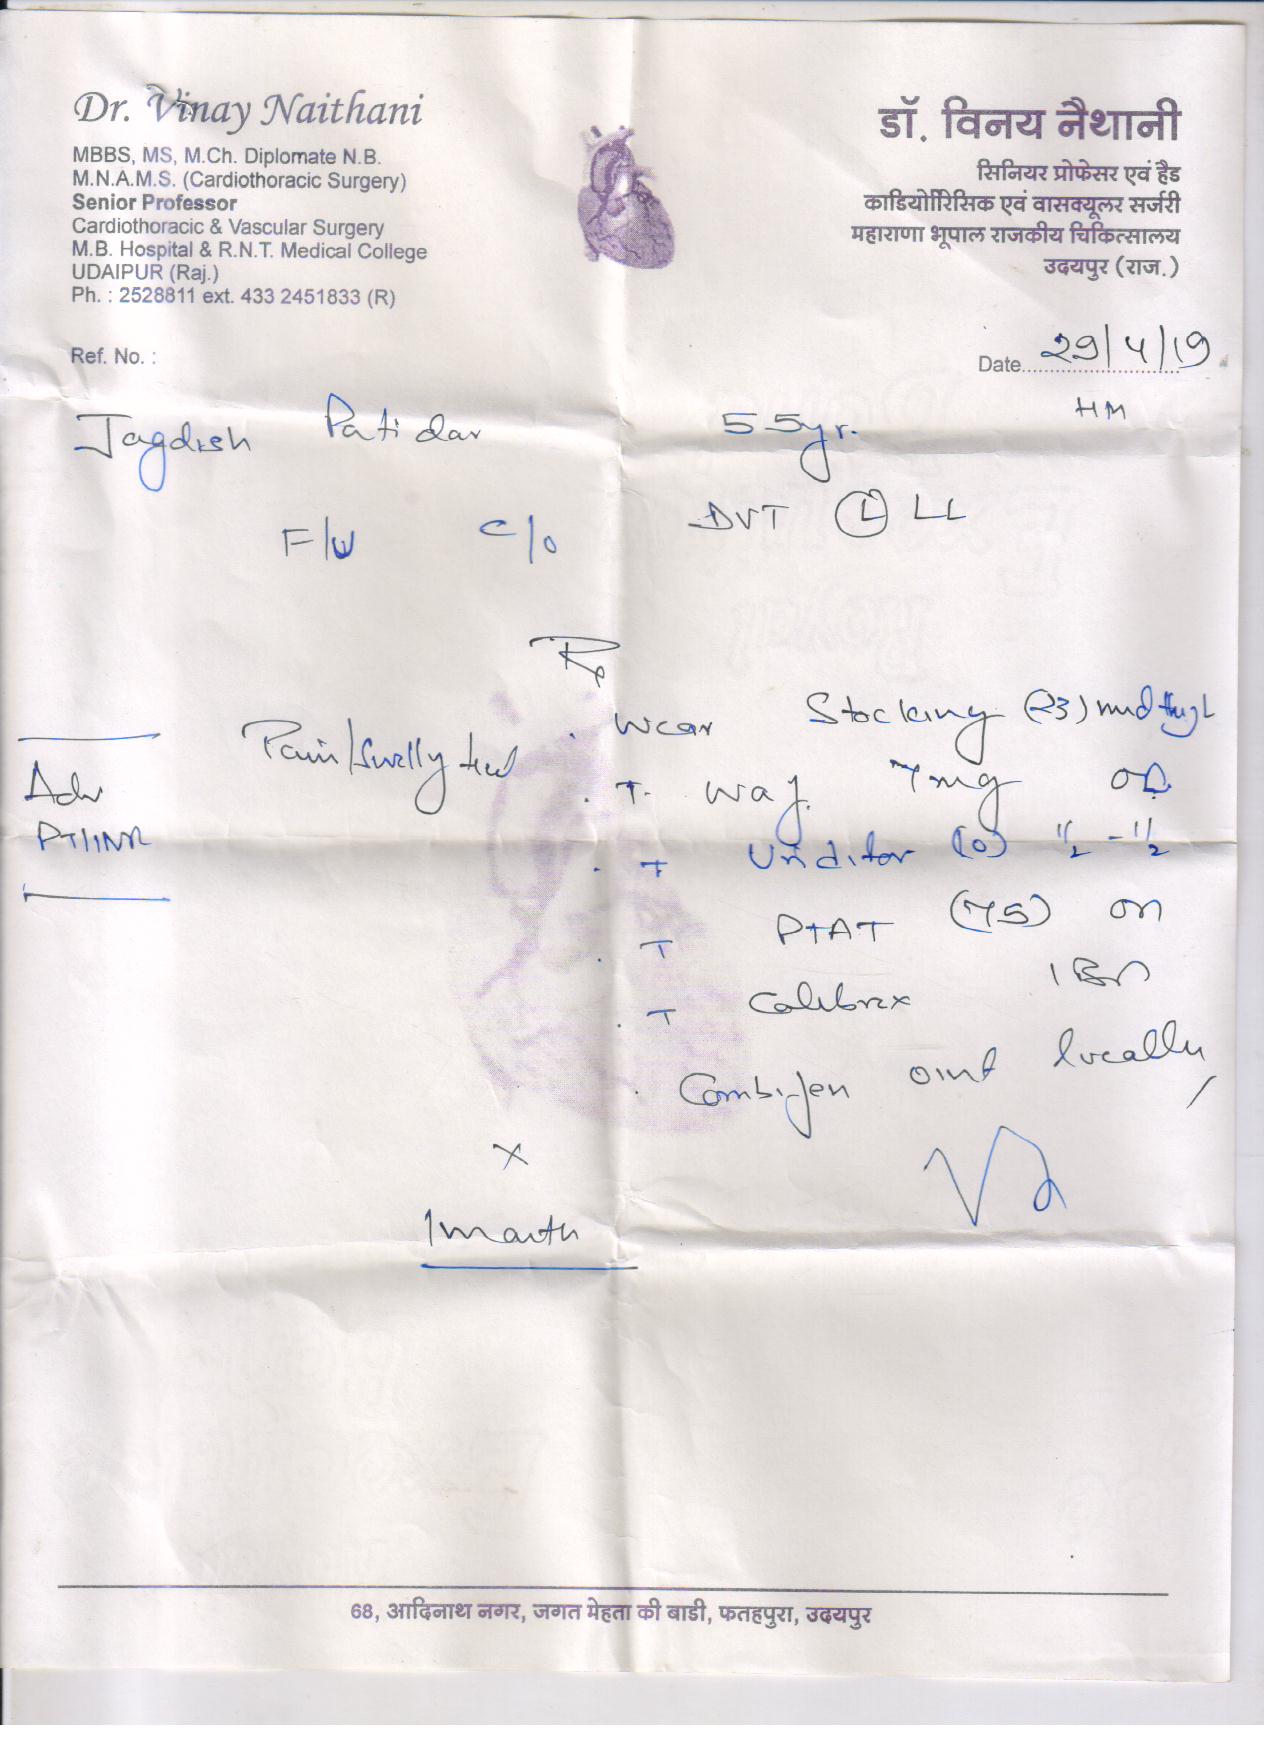 Dr. Vinay Naithani
MBBS, MS, M.Ch. Diplomate N.B.
M.N.A.M.S. (Cardiothoracic Surgery)
Senior Professor
Cardiothoracic & Vascular Surgery
M.B. Hospital & R.N.T. Medical College
UDAIPUR (Raj.)
Ph. : 2528811 ext. 433 2451833 (R)
डॉ. विनय नैथानी
सिनियर प्रोफेसर एवं हैड
कार्डियोथोरेसिक एवं वासक्यूलर सर्जरी
महाराणा भूपाल राजकीय चिकित्सालय
उदयपुर (राज.)
Ref. No. :
Date 29/4/19
HM
Jagdish Patidar 55yr.
F/U C/O DVT (L) LL
Rx
Wear Stocking (23) mid thigh
Pain/Swelly
T. 7mg OD
Adv
PT/INR
T (10) 1/2 - 1/2
T PTAT (75) on
T 1 BD
Combijen oint locally
x
1 month
68, आदिनाथ नगर, जगत मेहता की बाडी, फतहपुरा, उदयपुर